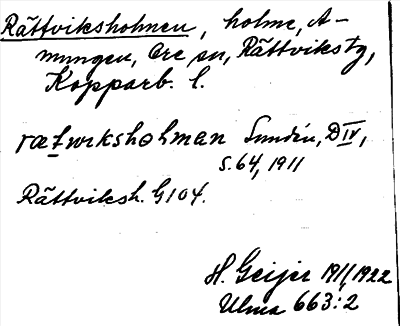 Rättviksholmen, holme, A-
mungen, Ore sn, Rättvikstg,
Kopparb. l.
rætwiksholman Sundin, D IV,
s. 64, 1911
Rättviksh. G 104.
H. Geijer 19/1 1922
Ulma 663:2